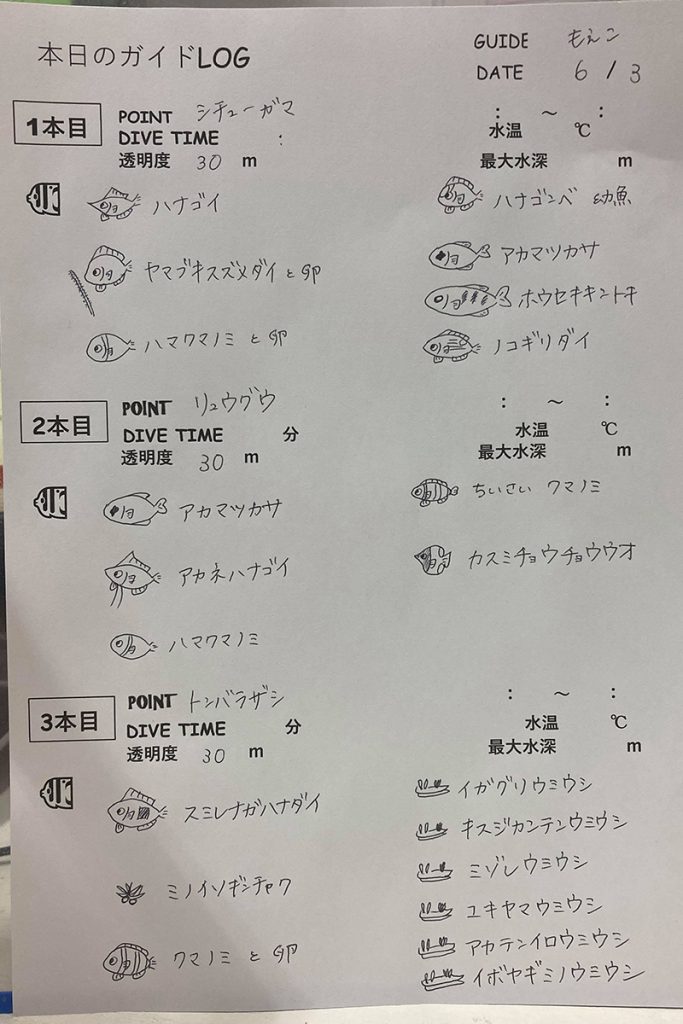 本日のガイドLOG
GUIDE もえこ
DATE 6 / 3
1本目
POINT シチューガマ
DIVE TIME :
透明度 30 m
: ～ :
水温 ℃
最大水深 m
ハナゴイ
ヤマブキスズメダイと卵
ハマクマノミと卵
ハナゴンベ 幼魚
アカマツカサ
ホウセキキントキ
ノコギリダイ
2本目
POINT リュウグウ
DIVE TIME 分
透明度 30 m
: ～ :
水温 ℃
最大水深 m
アカマツカサ
アカネハナゴイ
ハマクマノミ
ちいさい クマノミ
カスミチョウチョウウオ
3本目
POINT トンバラザシ
DIVE TIME 分
透明度 30 m
: ～ :
水温 ℃
最大水深 m
スミレナガハナダイ
ミノイソギンチャク
クマノミと卵
イガグリウミウシ
キスジカンテンウミウシ
ミゾレウミウシ
ユキヤマウミウシ
アカテンイロウミウシ
イボヤギミノウミウシ